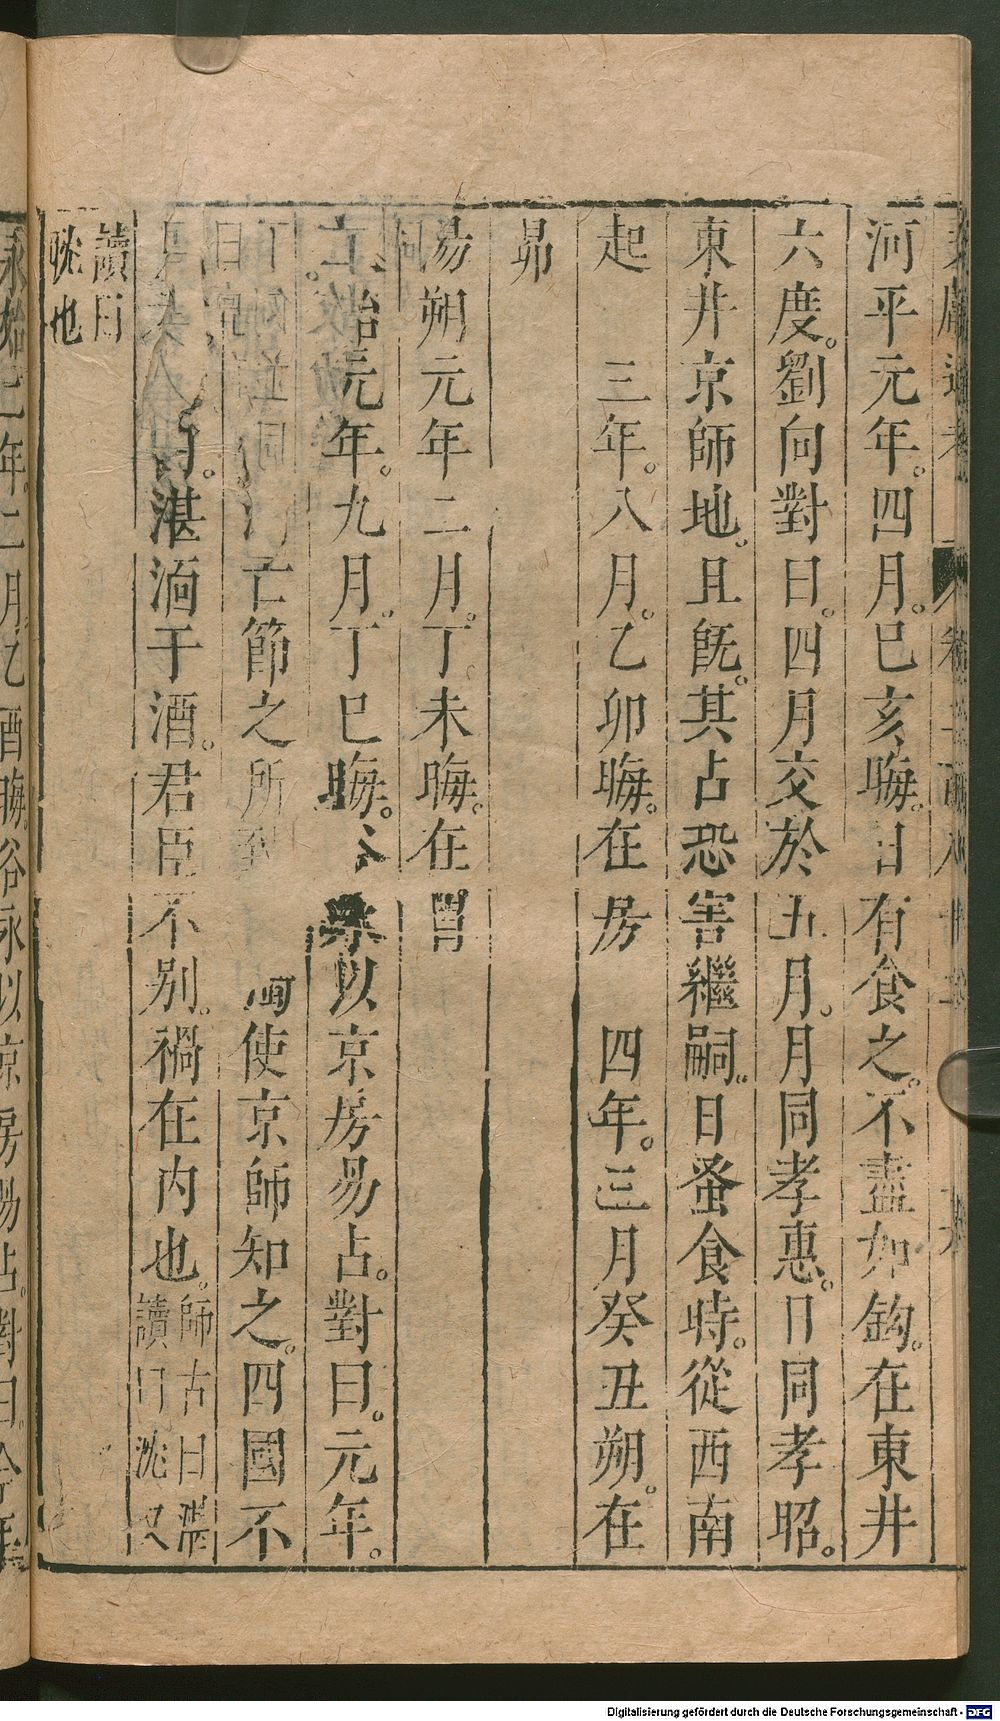 河平元年。四月。已亥晦。日有食之。不盡如鈎。在東井
六度。劉向對曰。四月交於五月。月同孝惠。日同孝昭。
東井京師地。且旣。其占恐害繼嗣。日蚤食時。從西南
起 三年。八月。乙卯晦。在房 四年。三月癸丑朔。在
昴
陽朔元年二月。丁未晦。在胃
始元年。九月。丁巳晦。谷 以京房易占。對曰。元年。
亡節之所 使京師知之。四國不
湛湎于酒。君臣不別。禍在內也。師古曰湛讀曰沈又
讀曰耽也
永始二年。二月乙酉晦。谷永以京房易占。對曰。今年
Digitalisierung gefördert durch die Deutsche Forschungsgemeinschaft - DFG